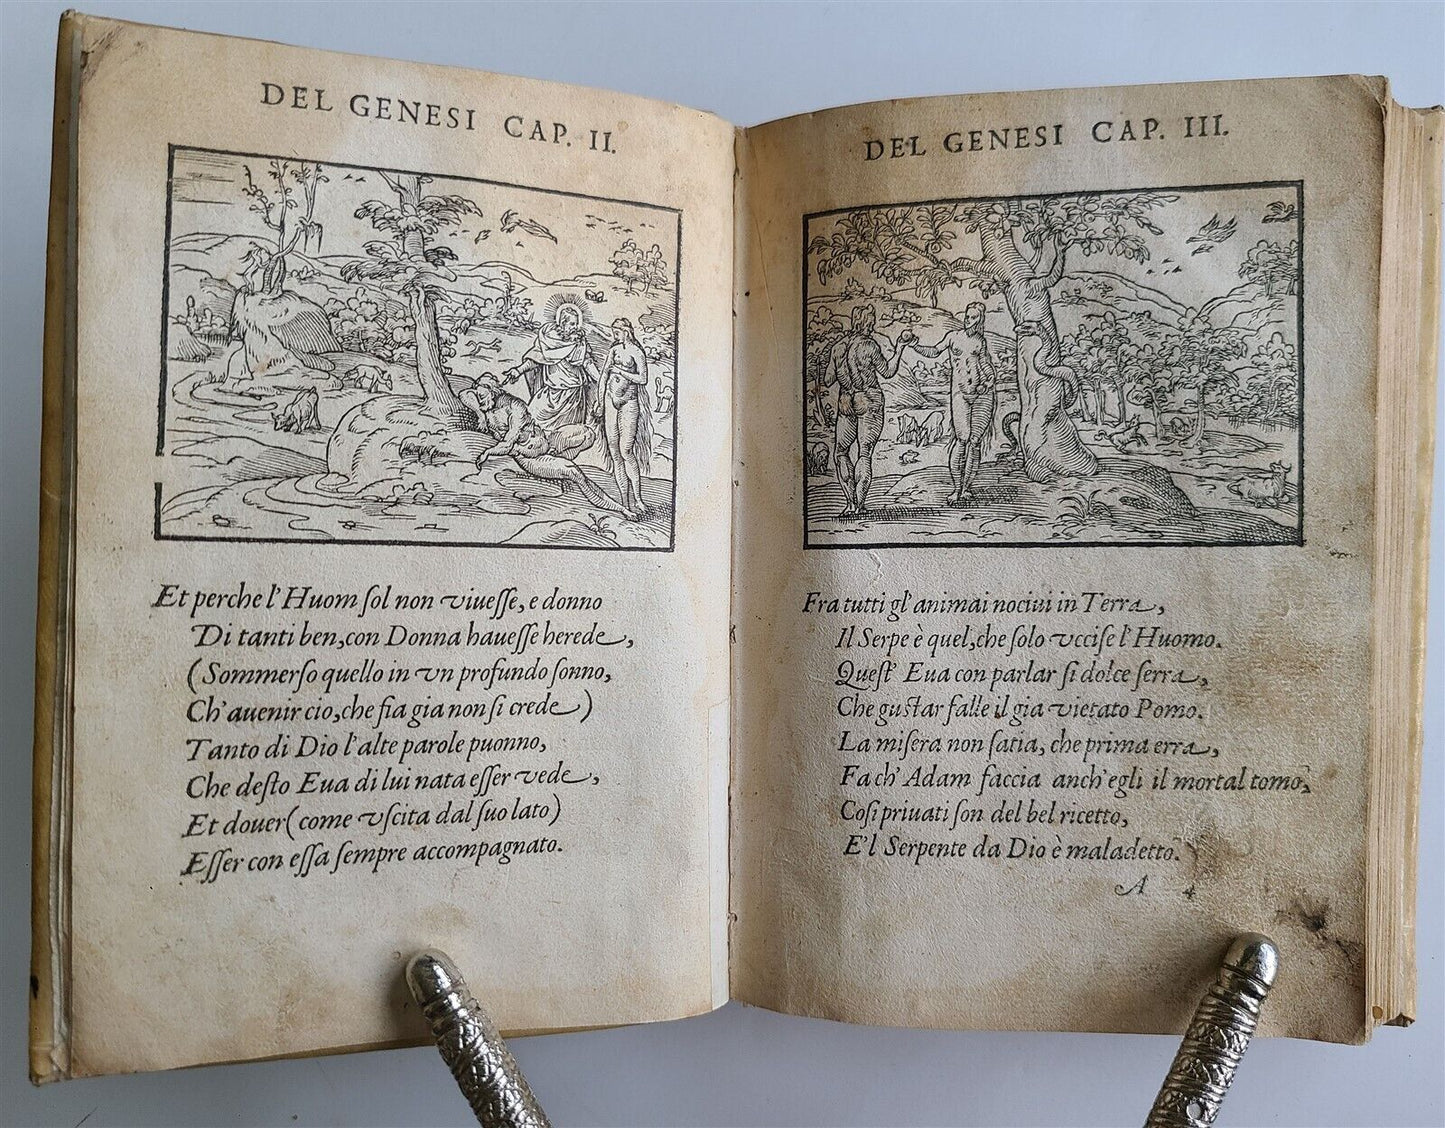 DEL GENESI CAP. II.
Et perche l'Huom ſol non viueſſe, e donno
Di tanti ben, con Donna haueſſe herede,
(Sommerſo quello in vn profundo ſonno,
Ch'auenir cio, che fia gia non ſi crede)
Tanto di Dio l'alte parole puonno,
Che deſto Eua di lui nata eſſer vede,
Et douer (come vſcita dal ſuo lato)
Eſſer con eſſa ſempre accompagnato.
DEL GENESI CAP. III.
Fra tutti gl'animai nociui in Terra,
Il Serpe è quel, che ſolo vcciſe l'Huomo.
Queſt' Eua con parlar ſi dolce ſerra,
Che guſtar falle il gia vietato Pomo.
La miſera non ſatia, che prima erra,
Fa ch'Adam faccia anch'egli il mortal tomo,
Coſi priuati ſon del bel ricetto,
E'l Serpente da Dio è maladetto.
A 4